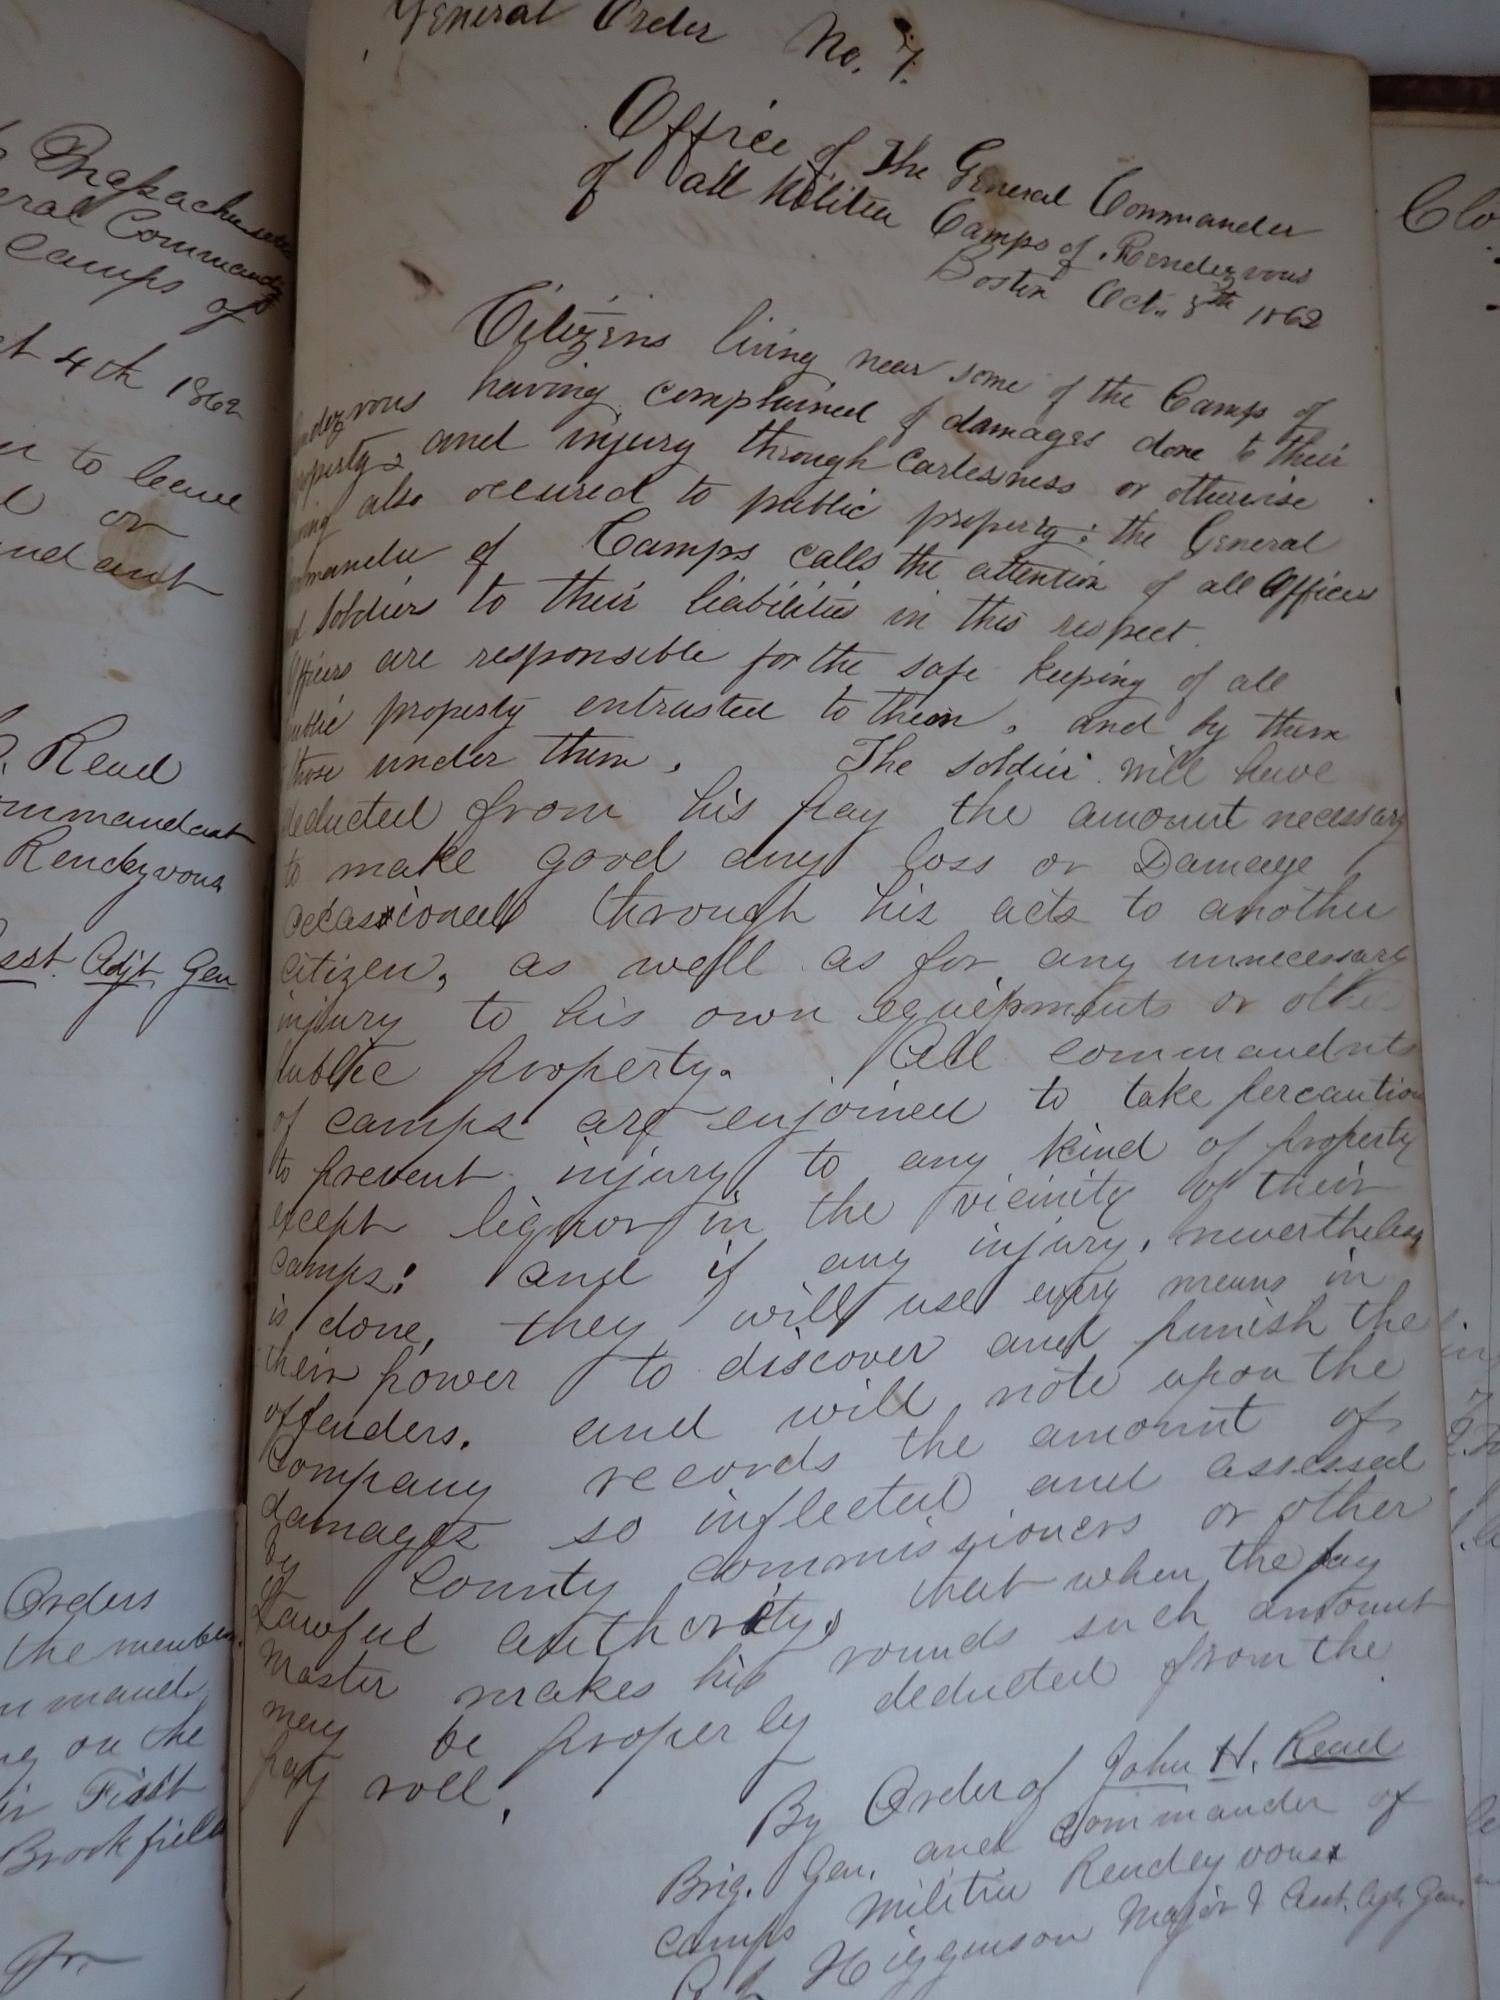 Massachusetts
eral Commander
camps of
ct 4th 1862
to leave
or
Read
ommandant
Rendezvous
sst. Adjt Gen
Orders
the members
mmand
on the
First
Brookfield
Jr.
General Order No. 7.
Office of The General Commander
of all Militia Camps of Rendezvous
Boston Oct. 8th 1862
Citizens living near some of the Camps of
ndezvous having complained of damages done to their
operty, and injury through carlessness or otherwise
ving also occured to public property; the General
mmander of Camps calls the attention of all Officers
nd soldiers to their liabilities in this respect.
Officers are responsible for the safe keeping of all
public property entrusted to them, and by them
those under them. The soldier will have
deducted from his pay the amount necessary
to make good any loss or Damage
occasioned through his acts to another
citizen, as well as for any unnecessary
injury to his own equipments or other
public property. All commandnts
of camps are enjoined to take percaution
to prevent injury to any kind of property
except liquor in the vicinity of their
camps: and if any injury, nevertheless
is done, they will use every means in
their power to discover and punish the
offenders. and will note upon the
Company records the amount of
damages so inflected and assessed
by County commissioners or other
Lawful authority, that when the pay
Master makes his rounds such amount
may be properly deducted from the
pay roll.
By Order of John H. Read
Brig. Gen. and Commander of
camps Militia Rendezvous
Higginson Major & Asst. Agt. Gen.
Clo